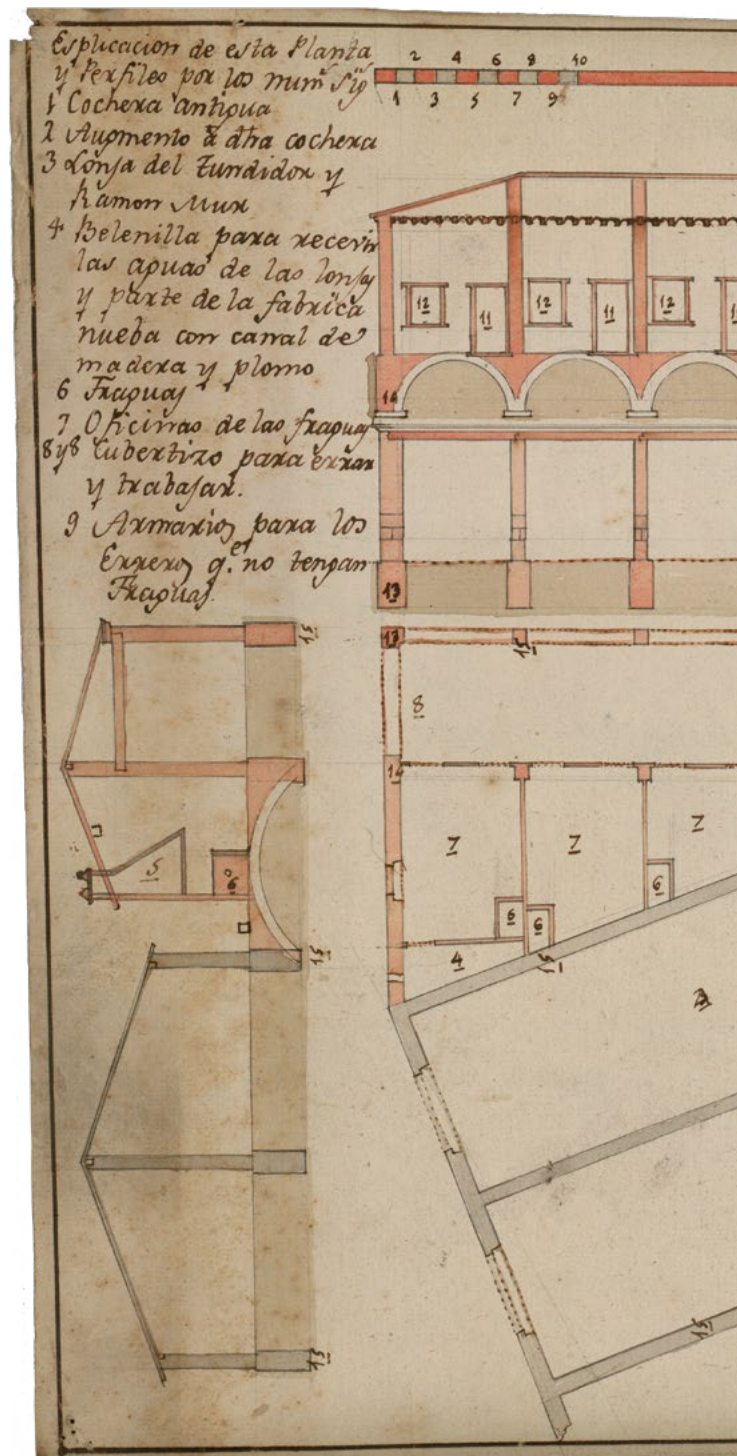 Esplicacion de esta Planta
y Perfiles por los num.s Sig
1 Cochera antigua
2 Augmento â dha cochera
3 Lonja del Tundidor y
Ramon Mur
4 Belenilla para recevir
las aguas de las lonjas
y parte de la fabrica
nueba con canal de
madera y plomo
6 Fraguas
7 Oficinas de las fraguas
8 y 8 Cubertizo para errar
y trabajar.
9 Armarios para los
Erreros q.e no tengan
Fraguas.
2 4 6 8 10
1 3 5 7 9
12 11 12 11 12 11
14
13
13 13 15
8
14
7 7 7
5 6
6 6 6
4
15 15
3
15
15